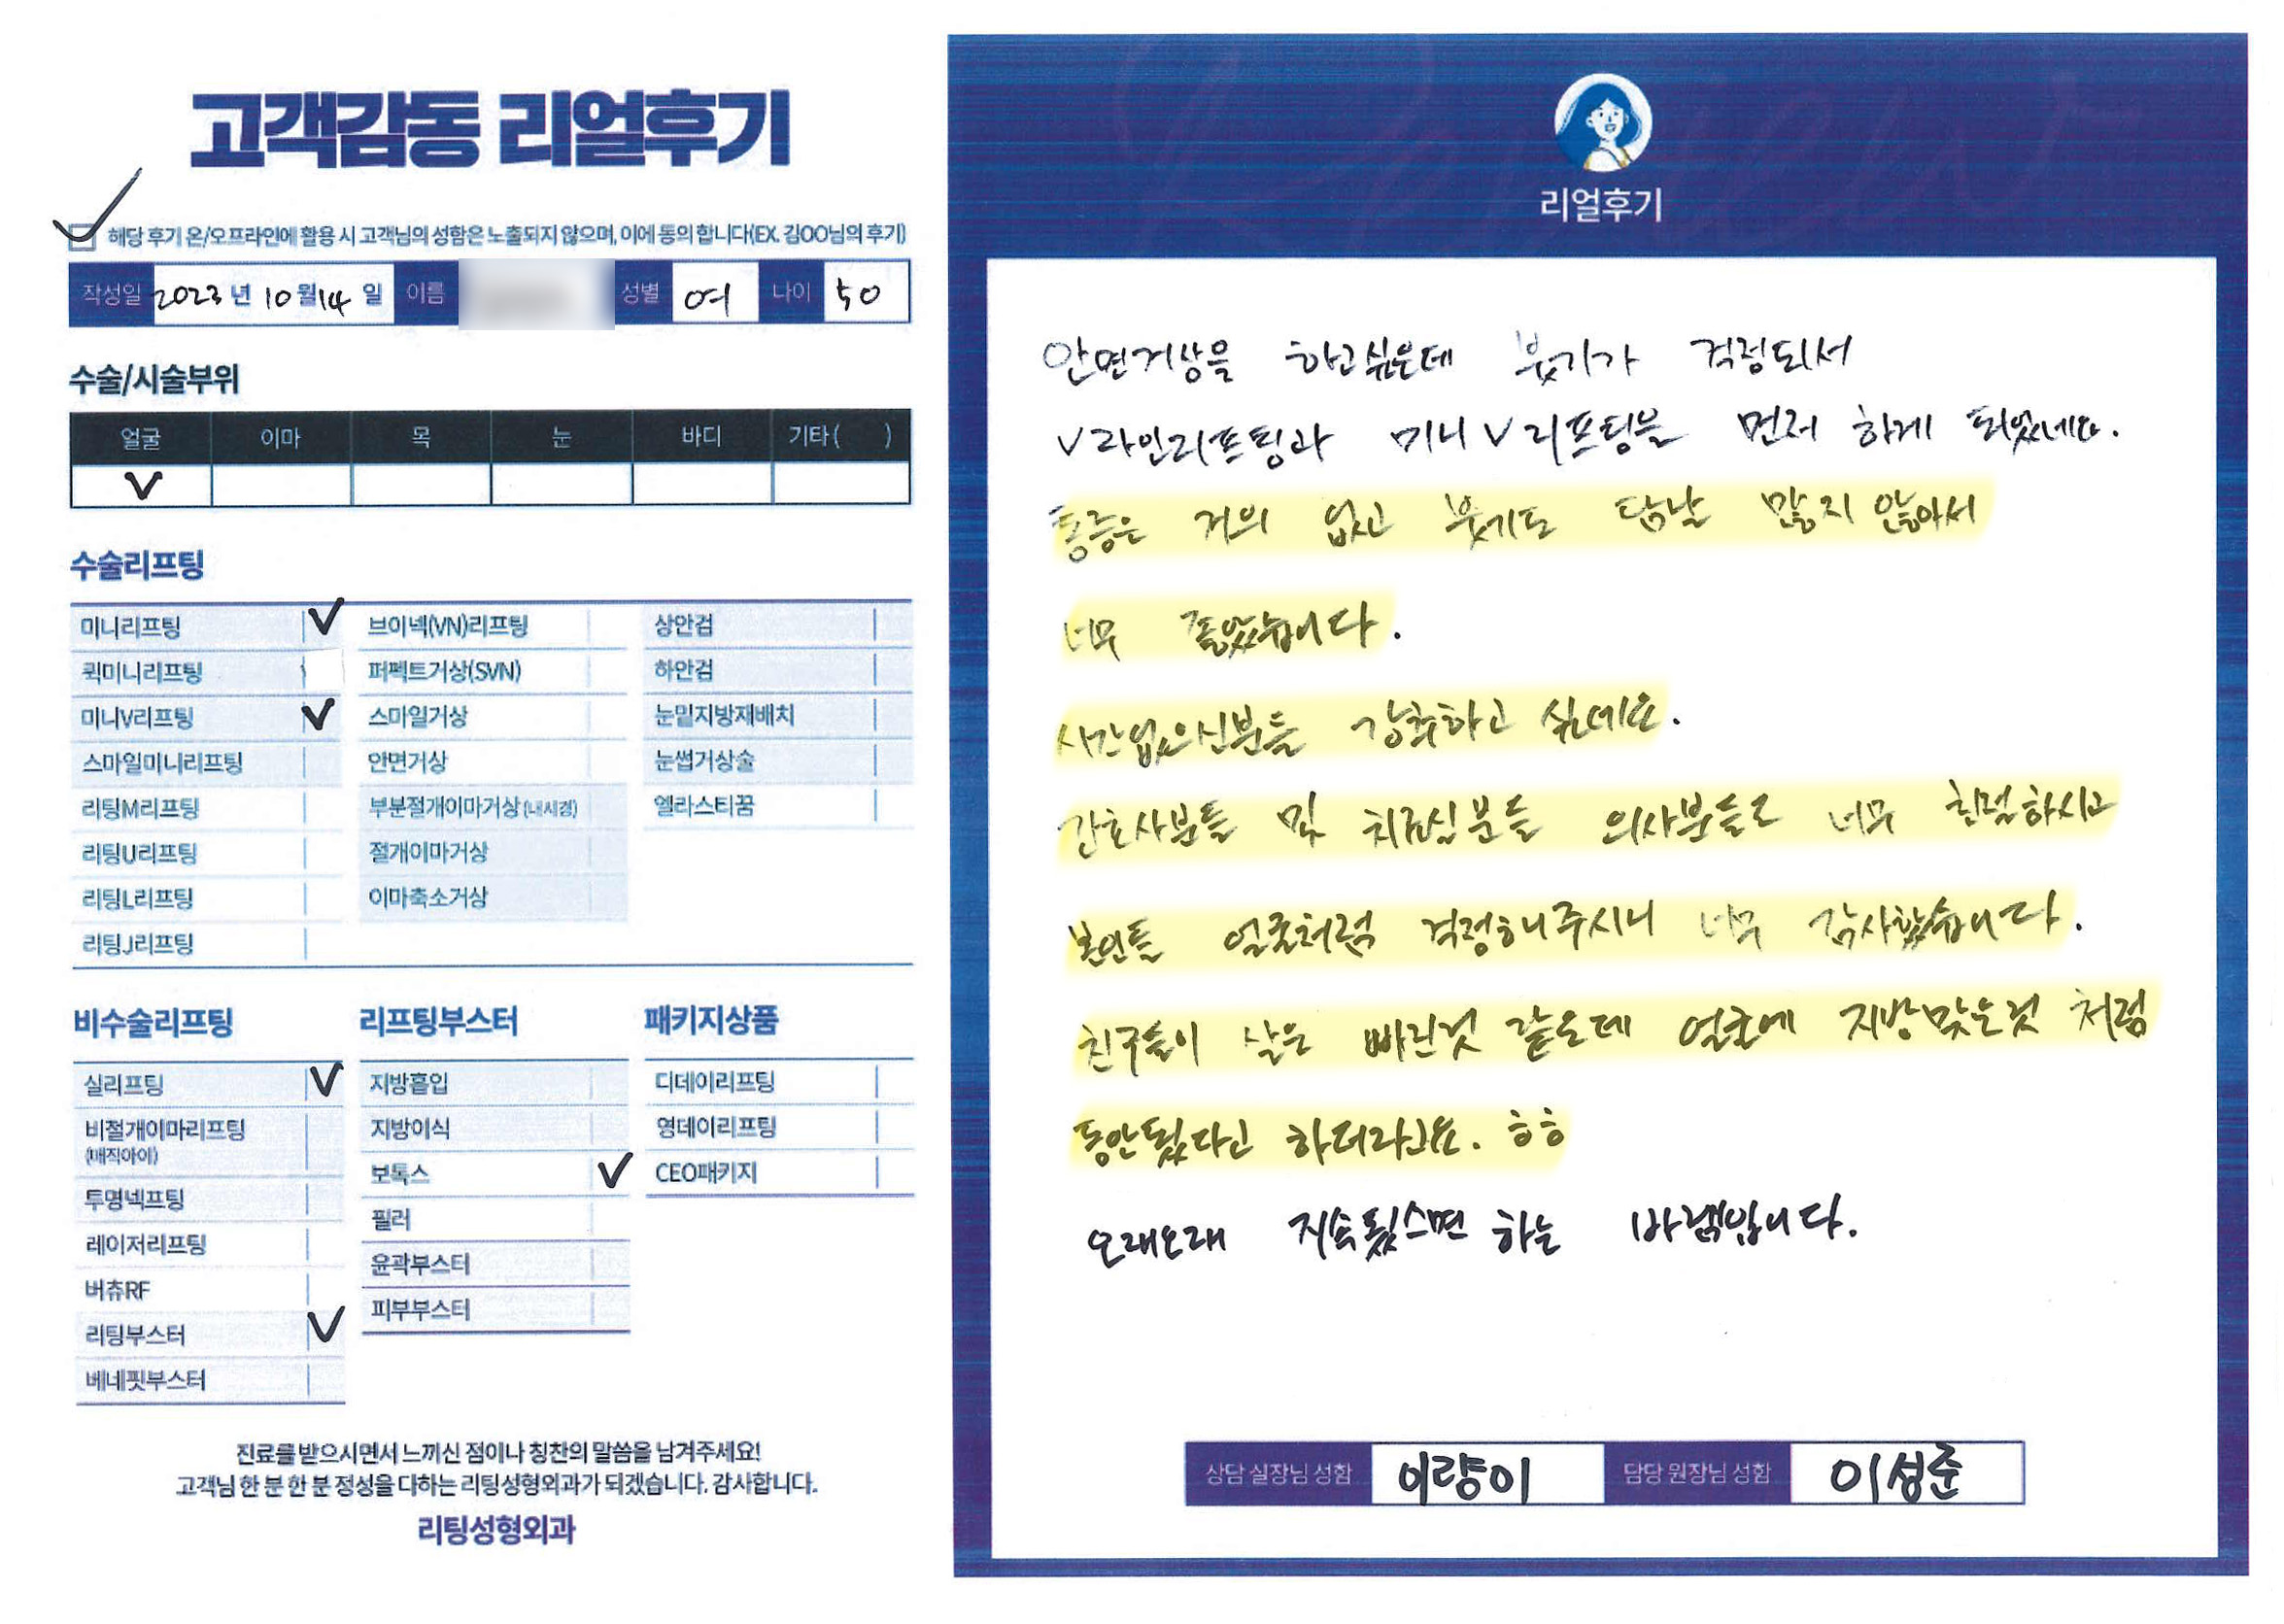 고객감동 리얼후기
해당 후기 온/오프라인에 활용 시 고객님의 성함은 노출되지 않으며, 이에 동의 합니다(EX. 김OO님의 후기)
작성일 2023 년 10 월 14 일 이름 성별 여 나이 50
수술/시술부위
얼굴 이마 목 눈 바디 기타 ( )
수술리프팅
미니리프팅 브이넥(VN)리프팅 상안검
퀵미니리프팅 퍼펙트거상(SVN) 하안검
미니V리프팅 스마일거상 눈밑지방재배치
스마일미니리프팅 안면거상 눈썹거상술
리팅M리프팅 부분절개이마거상 (내시경) 엘라스티꿈
리팅U리프팅 절개이마거상
리팅L리프팅 이마축소거상
리팅J리프팅
비수술리프팅 리프팅부스터 패키지상품
실리프팅 지방흡입 디데이리프팅
비절개이마리프팅 지방이식 영데이리프팅
(매직아이)
보톡스 CEO패키지
투명넥프팅 필러
레이저리프팅 윤곽부스터
버츄RF 피부부스터
리팅부스터
베네핏부스터
진료를 받으시면서 느끼신 점이나 칭찬의 말씀을 남겨주세요!
고객님 한 분 한 분 정성을 다하는 리팅성형외과가 되겠습니다. 감사합니다.
리팅성형외과
리얼후기
안면거상을 하고싶은데 붓기가 걱정되서
V라인리프팅과 미니V리프팅을 먼저 하게 되었네요.
통증은 거의 없고 붓기도 담날 많지 않아서
너무 좋았습니다.
시간없으신분들 강추하고 싶네요.
간호사분들 및 치료실분들 의사분들도 너무 친절하시고
본인들 얼굴처럼 걱정해주시니 너무 감사했습니다.
친구들이 살은 빠진것 같은데 얼굴에 지방맞은것 처럼
동안됬다고 하더라고요. ㅎㅎ
오래오래 지속됬스면 하는 바램입니다.
상담 실장님 성함 이량이 담당 원장님 성함 이성준